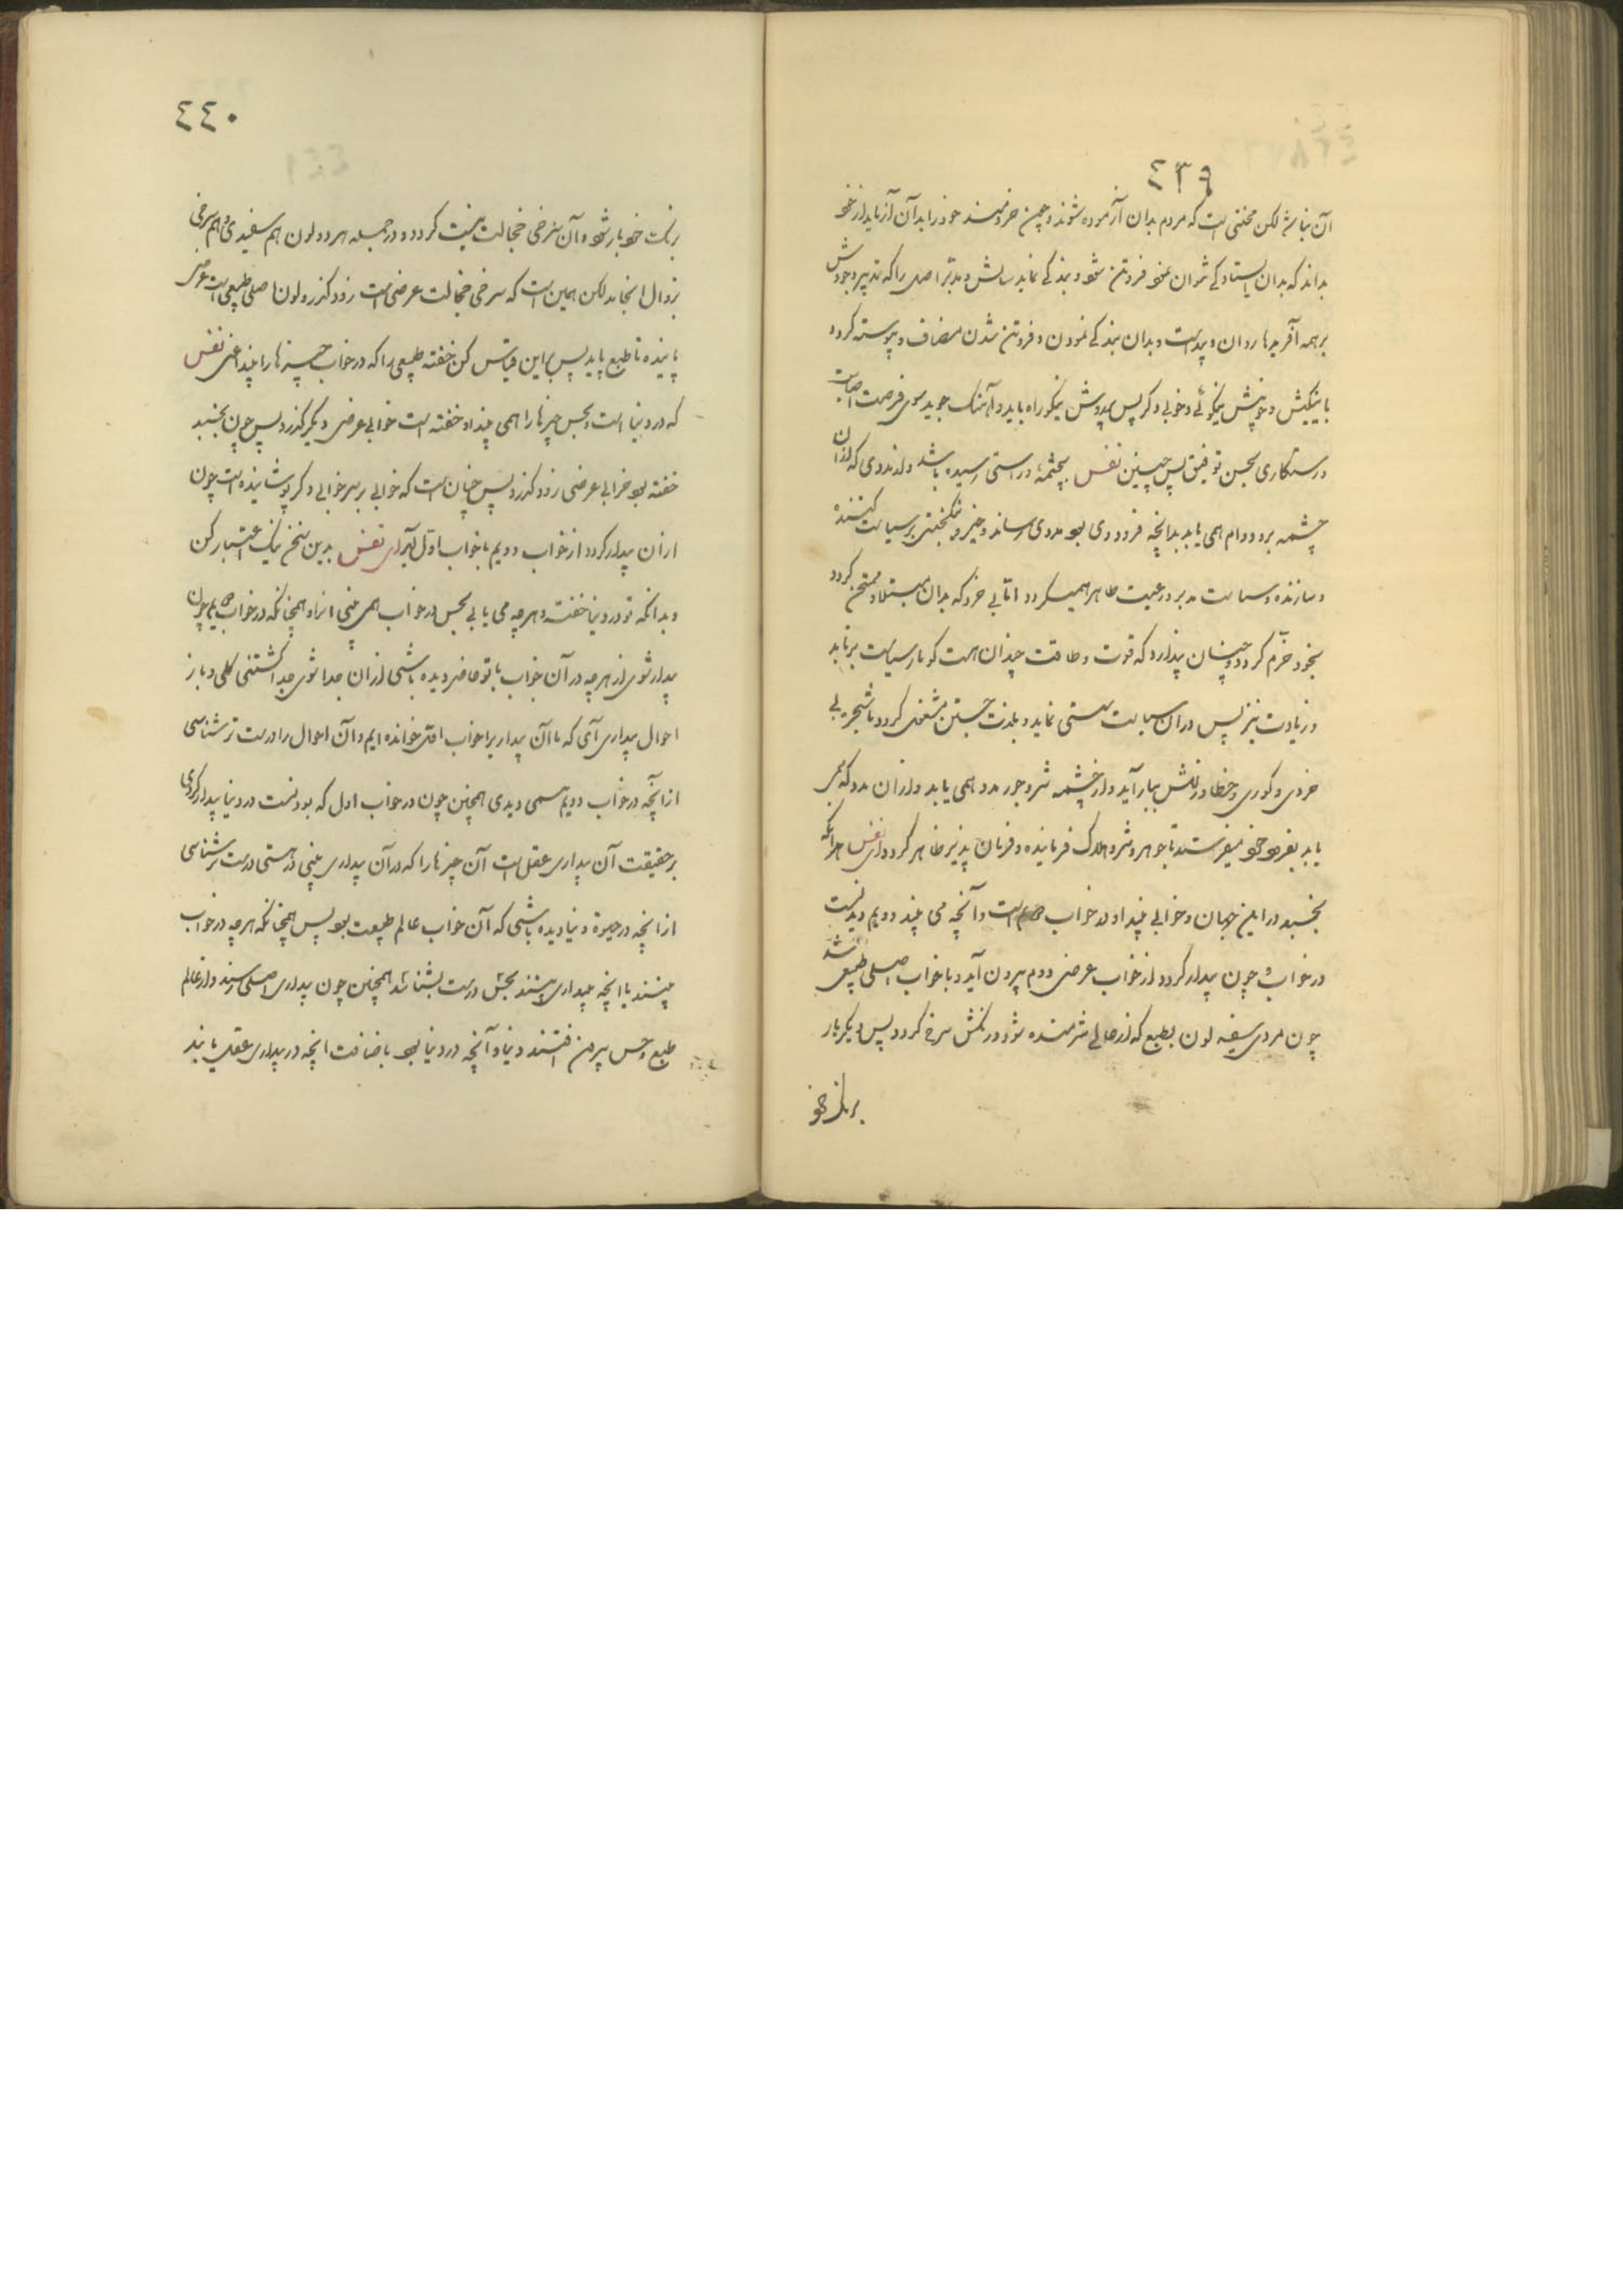 ٤٣٩
آن نباشد لکن محنتی است که مردم بدان آزموده شوند و چون خردمند خود را بدان آزماید از خود
بداند که بدان ایستادگی نتوان نمود فروتن شود و بندگی نماید سائس و مدبر اصلی را که تدبیر وجودش
بر همه آفریدها روان و پیداست و بدان بندگی نمودن و فروتن شدن مضاف و پیوسته گردد
با نیکیش و خوبیش نیکوئی و خوبی دگر پس بدو روش نیکو راه یابد و آهنگ جوید سوی فرصت اصابت
و رستکاری بحسن توفیق پس چنین نفس بچشمهٔ راستی رسیده باشد و مددی که از ان
چشمه برد و دوام همی یابد بدانچه فرود وی بود مددی رساند و خیر و نیکبختی بر سیاست کننده
و سازنده و سیاست مدبر و رعیت ظاهر همیگردد اما بی خرد که بدان مبتلا و ممتحن گردد
بخود خرم گردد و چنان پندارد که قوت و طاقت چندان هست کو بار سیاست برتابد
و زیادت نیز پس در ان سیاست سستی نماید و بلذت جستن مشغول گردد تا شجر بی
خردی و کوری و خطا در نفسش ببار آید و از چشمه شر و جور مدد همی یابد و از ان مدد که همی
یابد بفرود خود میفرستد تا جوهر و شر و هلاک فرماینده و فرمان پذیر ظاهر گردد ای نفس هر آنکه
بخسبد در این جهان و خوابی بیند او در خواب است و آنچه می بیند دویم دیدنست
در خواب و چون بیدار گردد از خواب عرضی دوم بیرون آید و با خواب اصلی طبیعی شد
چون مردی سفید لون بطبع که از حالی شرمنده شود و رنگش سرخ گردد پس دیگر بار
برنک خود
٤٤٠
رنک خود باز شود و آن سرخی خجالت نیست گردد و در جمله هر دو لون هم سفیدی و هم سرخی
بزوال انجامد لکن همین است که سرخی خجالت عرضی است زود گذرد و لون اصلی طبیعی است
پاینده تا طبع پاید پس براین قیاس کن خفته طبیعی را که در خواب چیزها را بیند اعنی نفس
که در دنیا است و بحس چیزها را همی بیند او خفته است خوابی عرضی دیگر گذرد پس چون بخسبد
خفته بود خوابی عرضی زود گذرد پس چنان است که خوابی بر سر خوابی دگر پوشانیده است چون
از ان بیدار گردد از خواب دویم با خواب اول آید ای نفس بدین سخن نیک اعتبار کن
و بدانکه تو در دنیا خفته و هر چه می یابی بحس در خواب همی بینی انراه همچنانکه در خواب چون
بیدار شوی از هر چه در آن خواب با تو حاضر دیده باشی از ان جدا شوی جدا گشتنی کلی و باز
احوال بیداری آی که ما آن بیداریرا خواب اول خوانده ایم و آن احوال را درست تر شناسی
از آنچه در خواب دویم همی دیدی همچنین چون در خواب اول که بودنست در دنیا بیدار گردی
بر حقیقت آن بیداری عقل است آن چیزها را که در آن بیداری بینی در هستی درست تر شناسی
از انچه در حیوة دنیا دیده باشی که آن خواب عالم طبیعت بود پس همچنانکه هر چه در خواب
بینند با انچه ببیداری بینند بحس درست نشناسند همچنین چون بیداری اصلی رسند و از عالم
طبع و حس بیرون افتند دنیا و آنچه در دنیا بود باضافت انچه در بیداری عقلی یابند